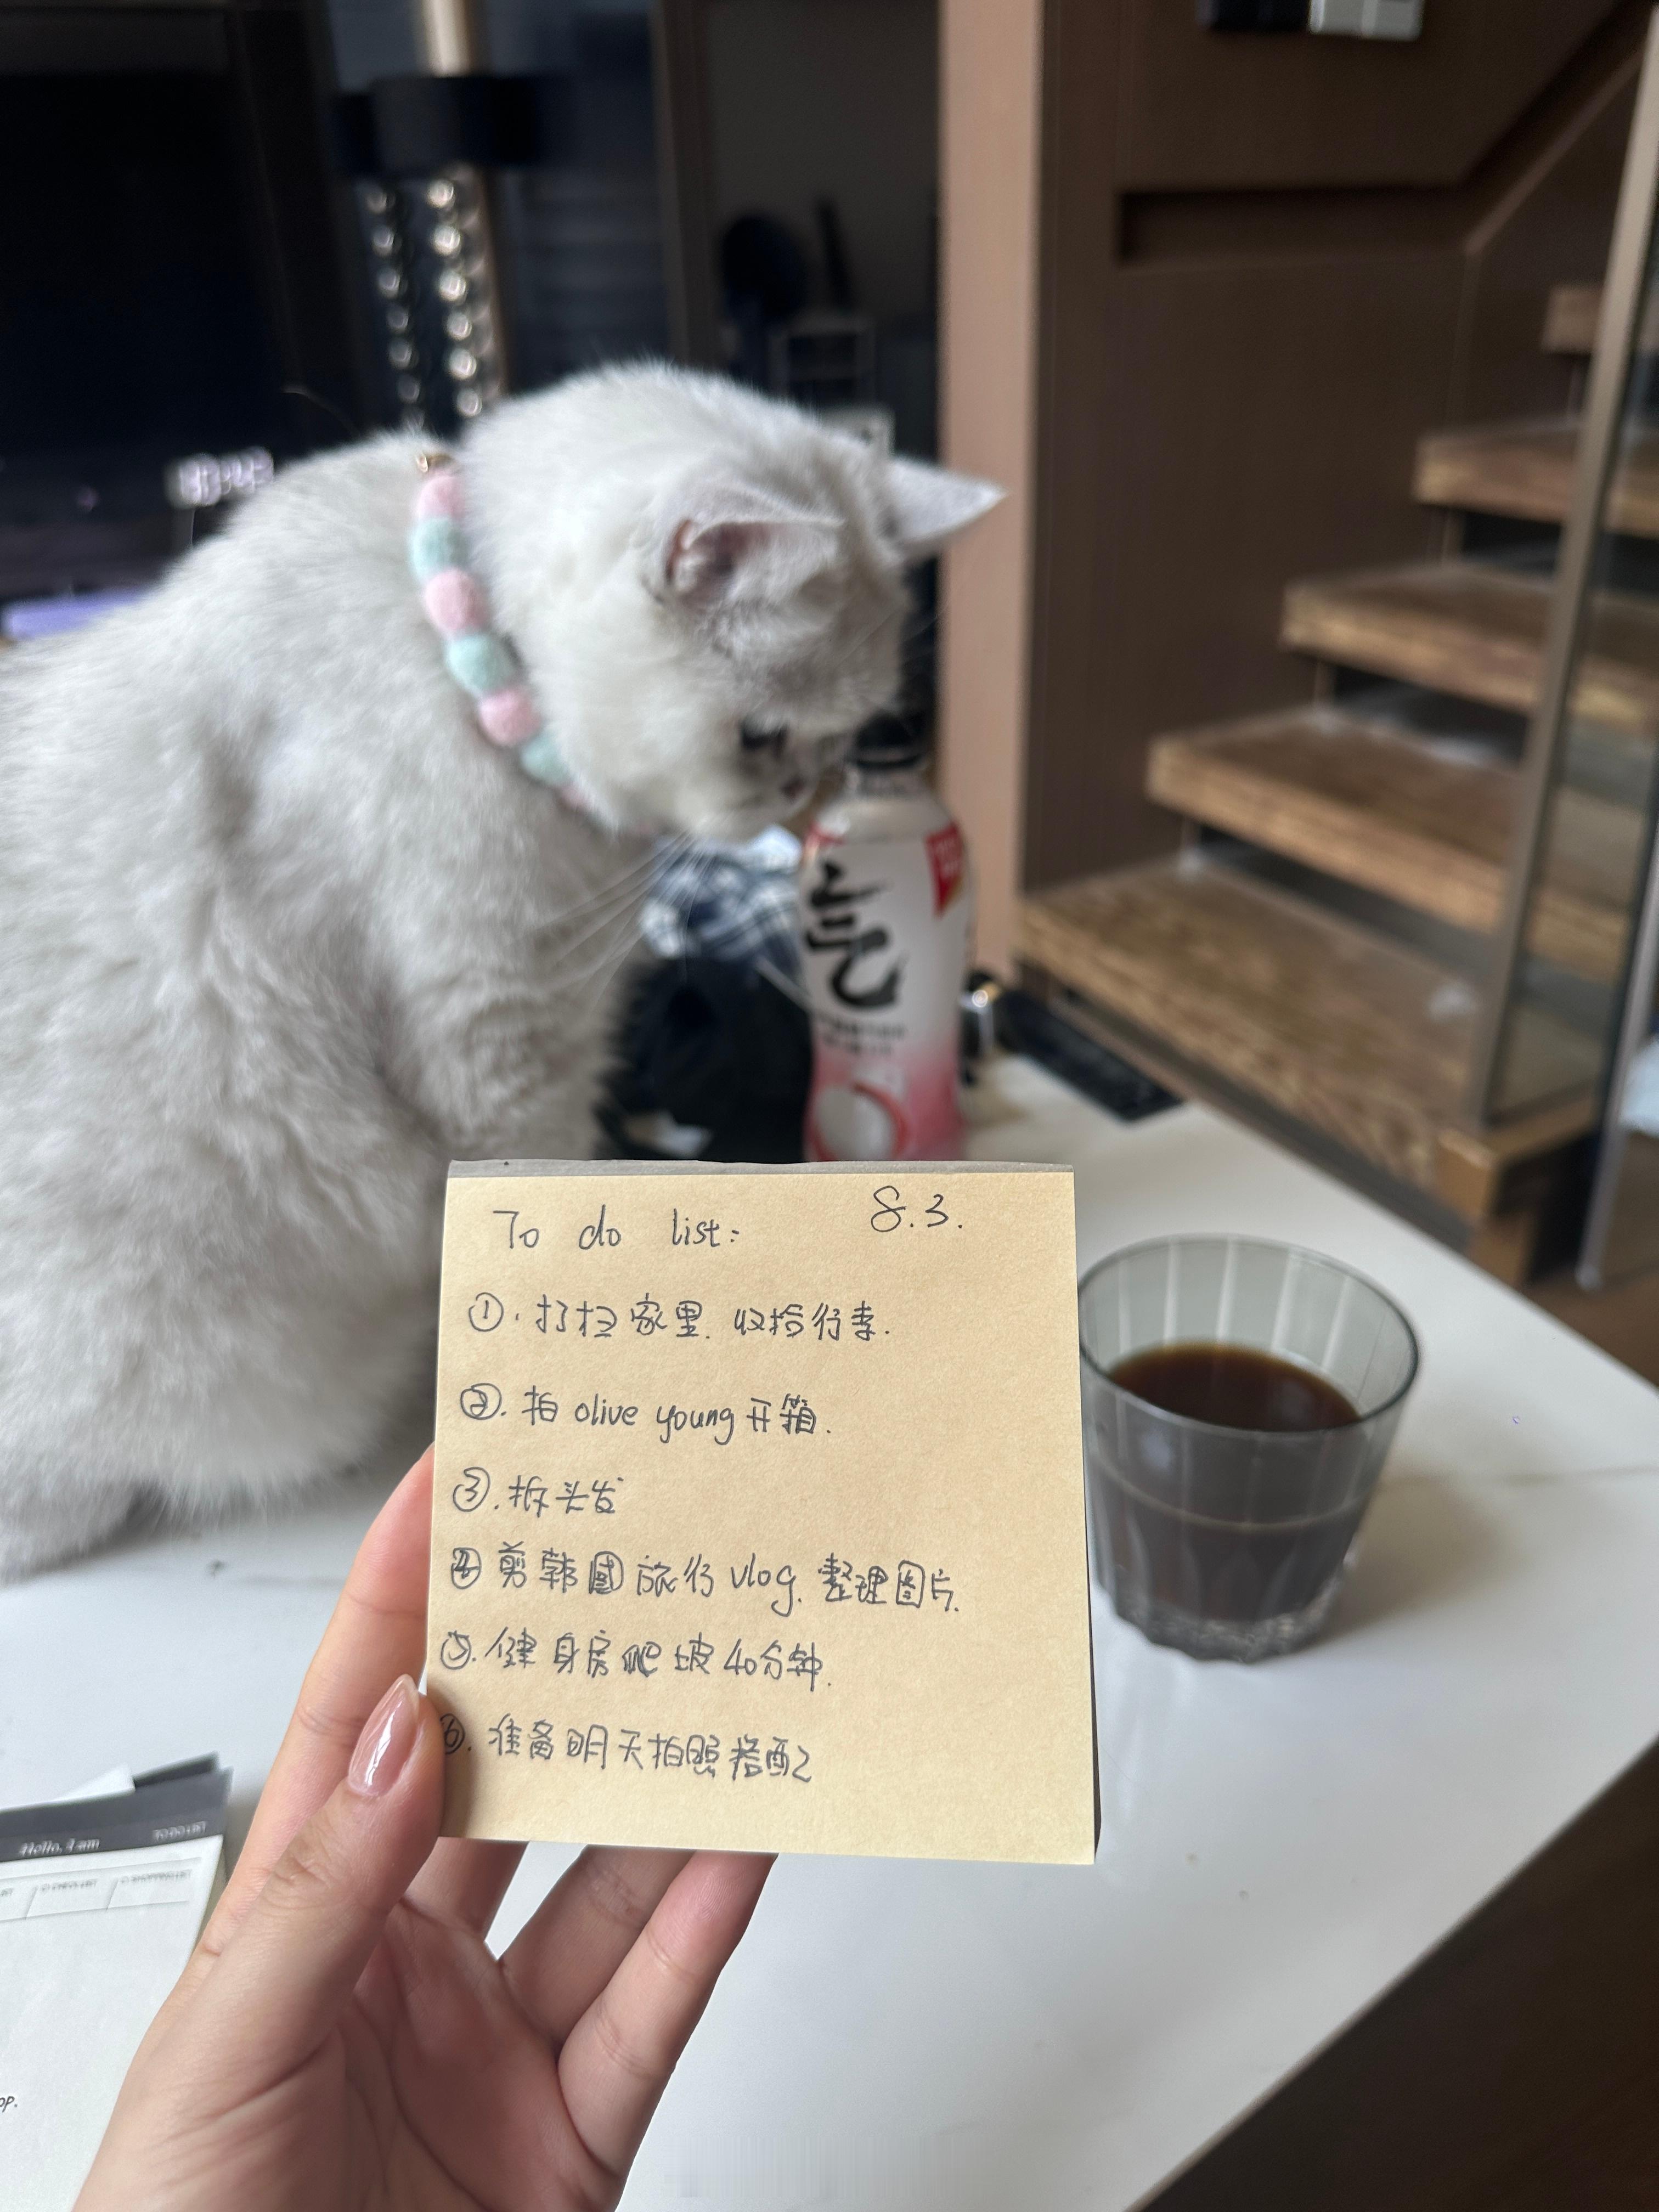 气
To do list: 8.3.
①. 打扫家里. 收拾行李.
②. 拍 olive young 开箱.
③. 拆头发
④ 剪韩國旅行 vlog. 整理图片.
⑤. 健身房爬坡40分钟.
⑥. 准备明天拍照搭配
Hello, I am TO DO LIST